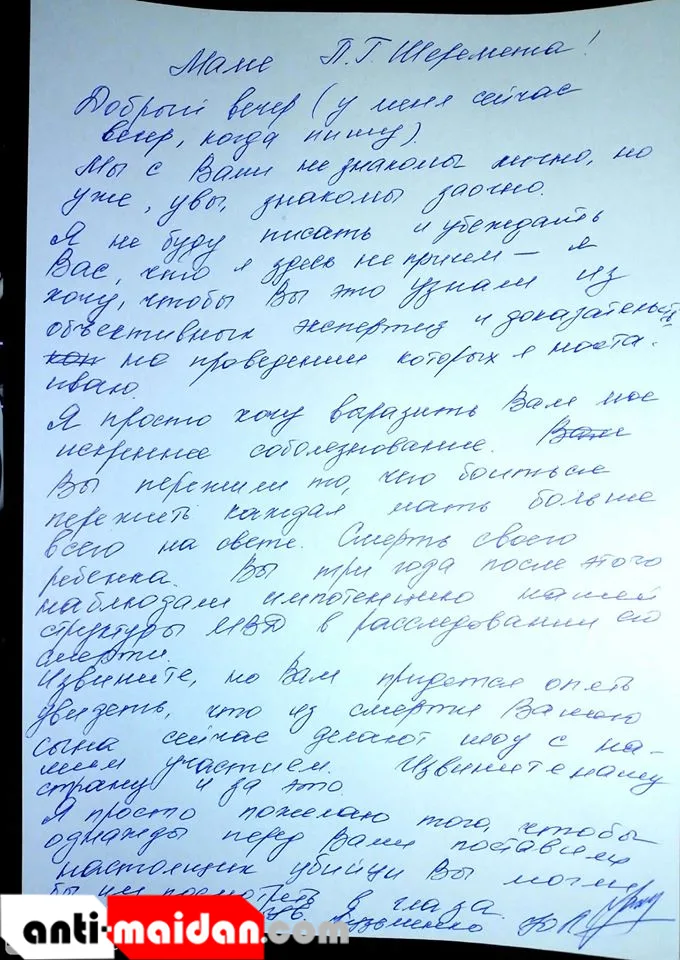 Маме П.Г. Шеремета!
Добрый вечер (у меня сейчас
вечер, когда пишу).
Мы с Вами не знакомы лично, но
уже, увы, знакомы заочно.
Я не буду писать и убеждать
Вас, что я здесь не причем – я
хочу, чтобы Вы это узнали из
объективных экспертиз и доказательств
на проведении которых я наста-
иваю.
Я просто хочу выразить Вам мое
искреннее соболезнование. Вам
Вы пережили то, чего боиться
пережить каждая мать больше
всего на свете. Смерть своего
ребенка. Вы три года после этого
наблюдали импотенцию нашей
структуры МВД в расследовании его
смерти.
Извините, но Вам придется опять
увидеть, что из смерти Вашего
сына сейчас делают шоу с на-
шим участием. Извините нашу
страну и за это.
Я просто пожелаю того, чтобы
однажды перед Вами поставили
настоящих убийц и Вы могли
бы им посмотреть в глаза.
Кузьменко Ю
anti-maidan.com